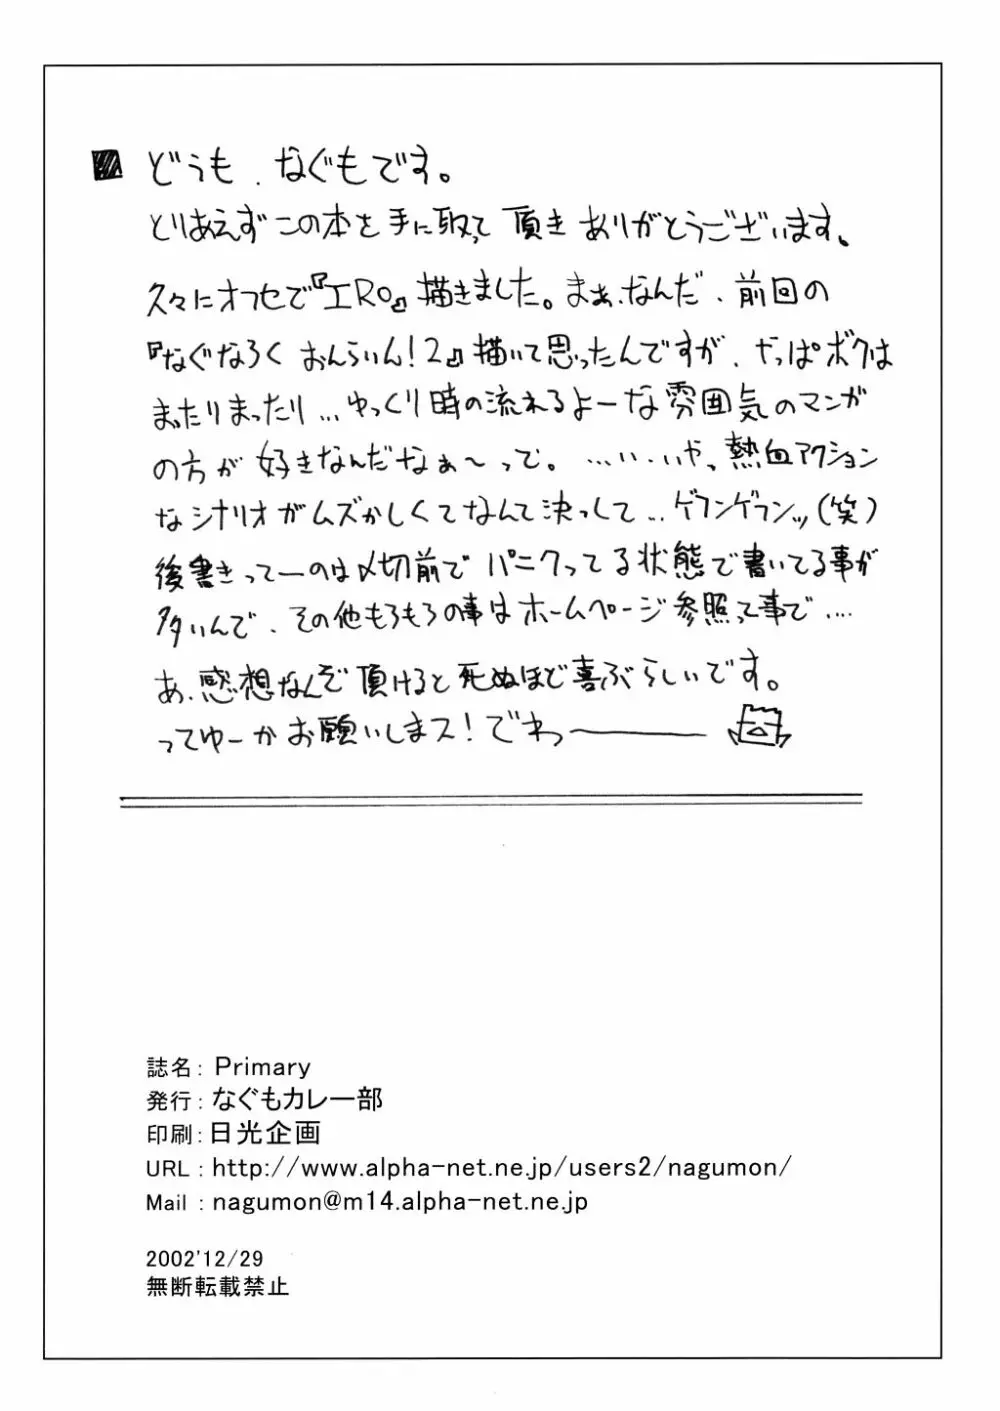 どうも、なぐもです。
とりあえずこの本を手に取って頂きありがとうございます。
久々にオフセで『ERO』描きました。まぁ、なんだ、前回の
『なぐなろく おんらいん!2』描いて思ったんですが、やっぱボクは
まったりまったり…ゆっくり時の流れるよーな雰囲気のマンガ
の方が好きなんだなぁ〜って。…い、いやっ熱血アクション
なシナリオがムズかしくてなんて決っして…ゲフンゲフンッ(笑)
後書きってーのは〆切前でパニクってる状態で書いてる事が
多いんで、その他もろもろの事はホームページ参照って事で….
あ、感想なんぞ頂けると死ぬほど喜ぶらしいです。
ってゆーかお願いしまス!でわっ―――
誌名: Primary
発行: なぐもカレー部
印刷: 日光企画
URL : http://www.alpha-net.ne.jp/users2/nagumon/
Mail : nagumon@m14.alpha-net.ne.jp
2002'12/29
無断転載禁止